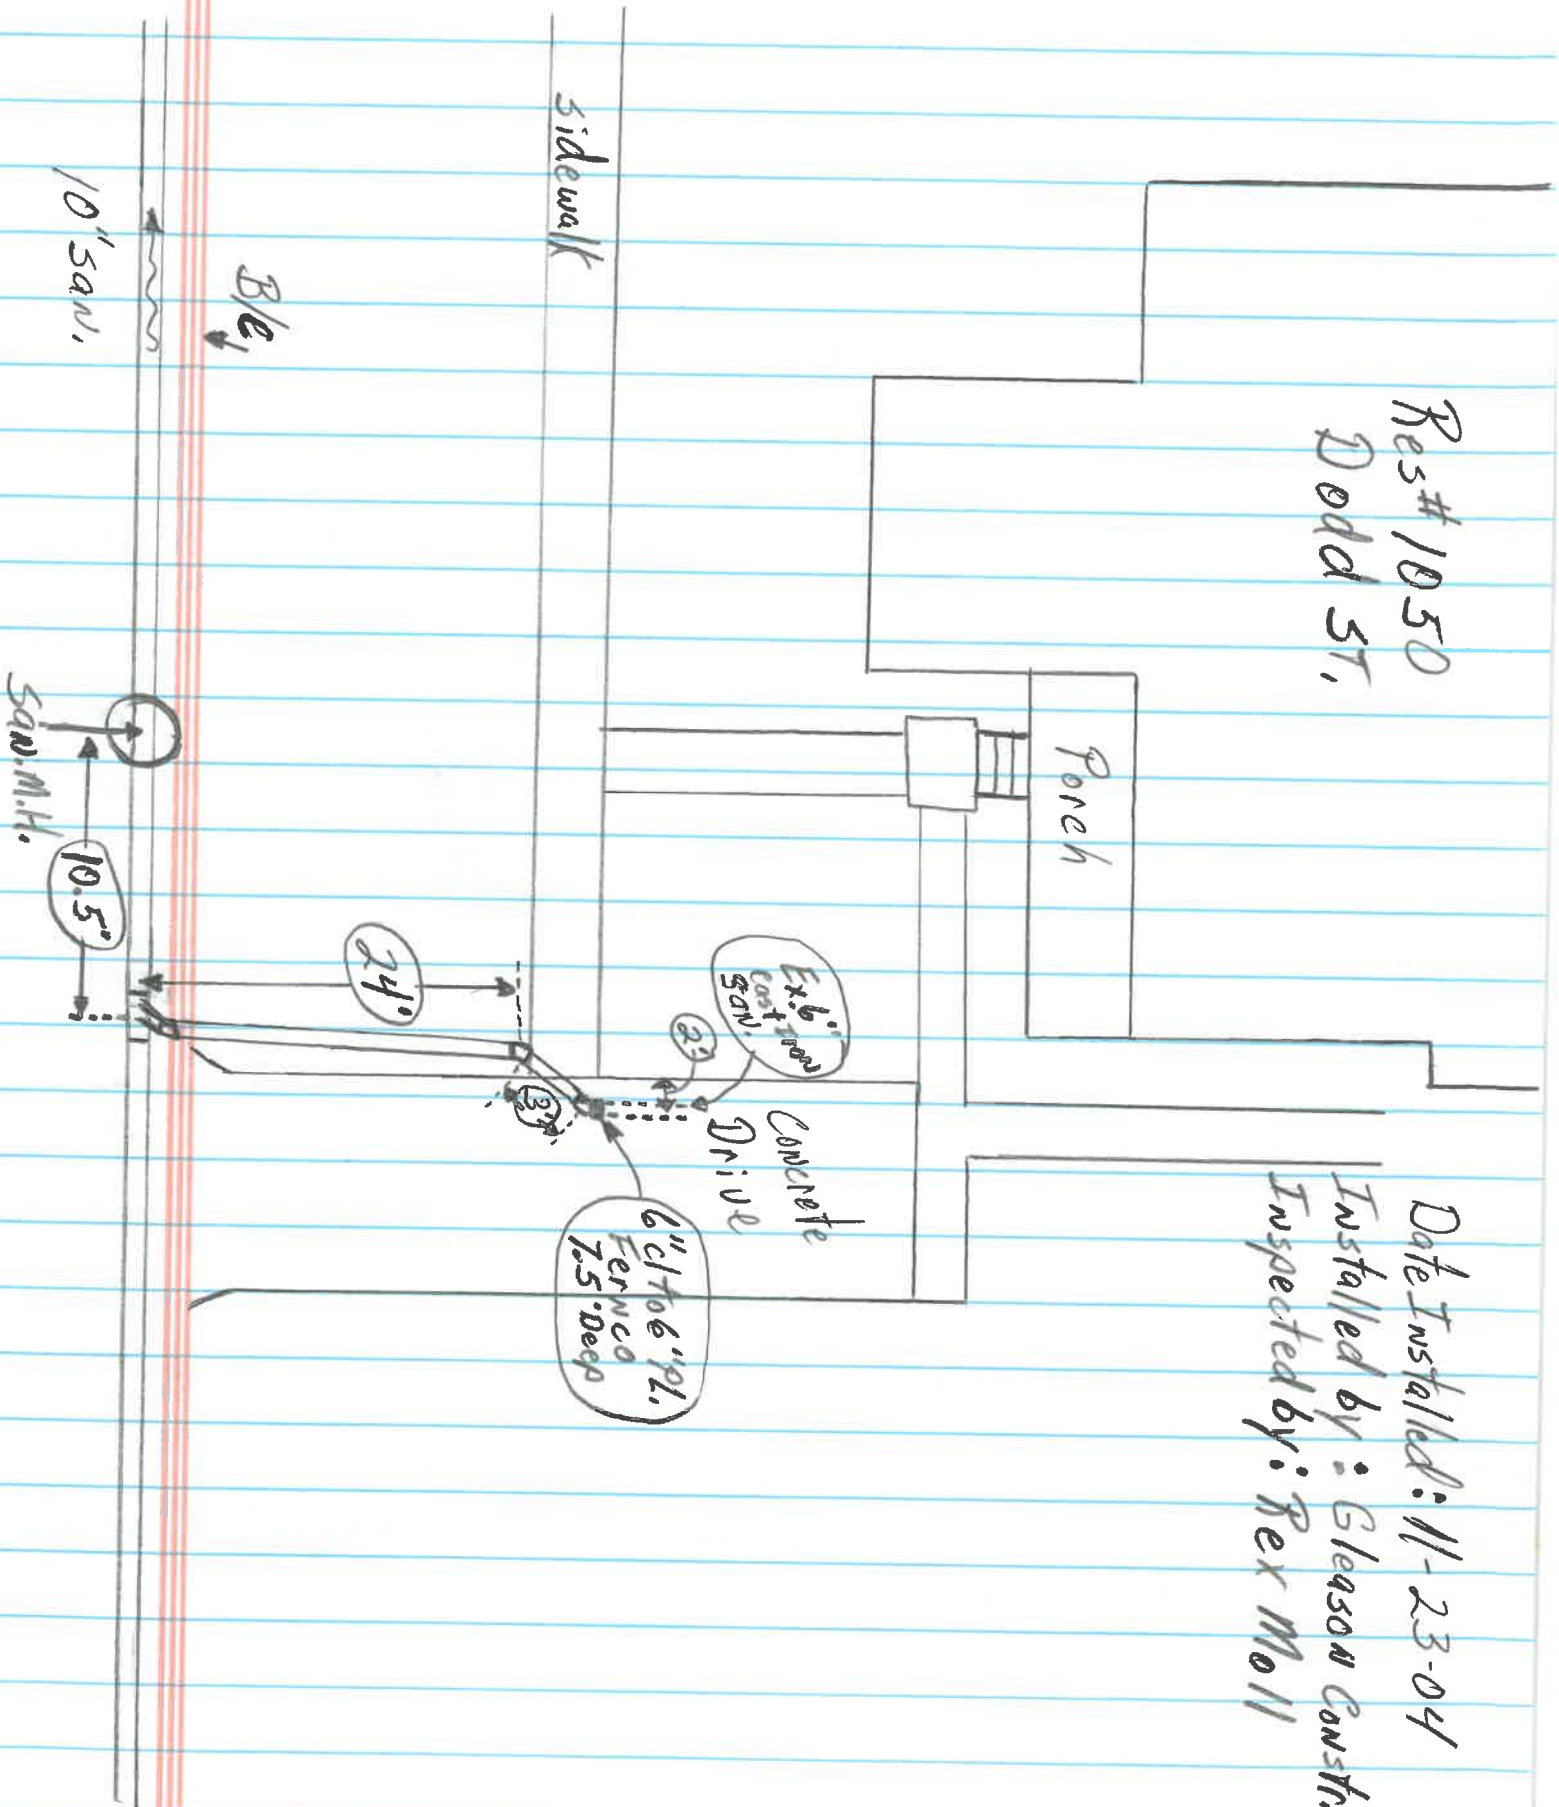 Res# 1050
Dodd ST.
Date Installed: 11-23-04
Installed by: Gleason Constr.
Inspected by: Rex Moll
Porch
Concrete
Drive
Ex. 6"
cast iron
san.
2'
6" CI to 6" PL.
Fernco
7.5' Deep
3'
24'
Sidewalk
B/C
10" San.
San. M.H.
10.5'